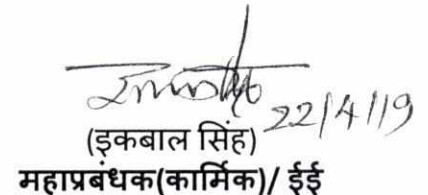 22/4/19
(इकबाल सिंह)
महाप्रबंधक(कार्मिक)/ ईई